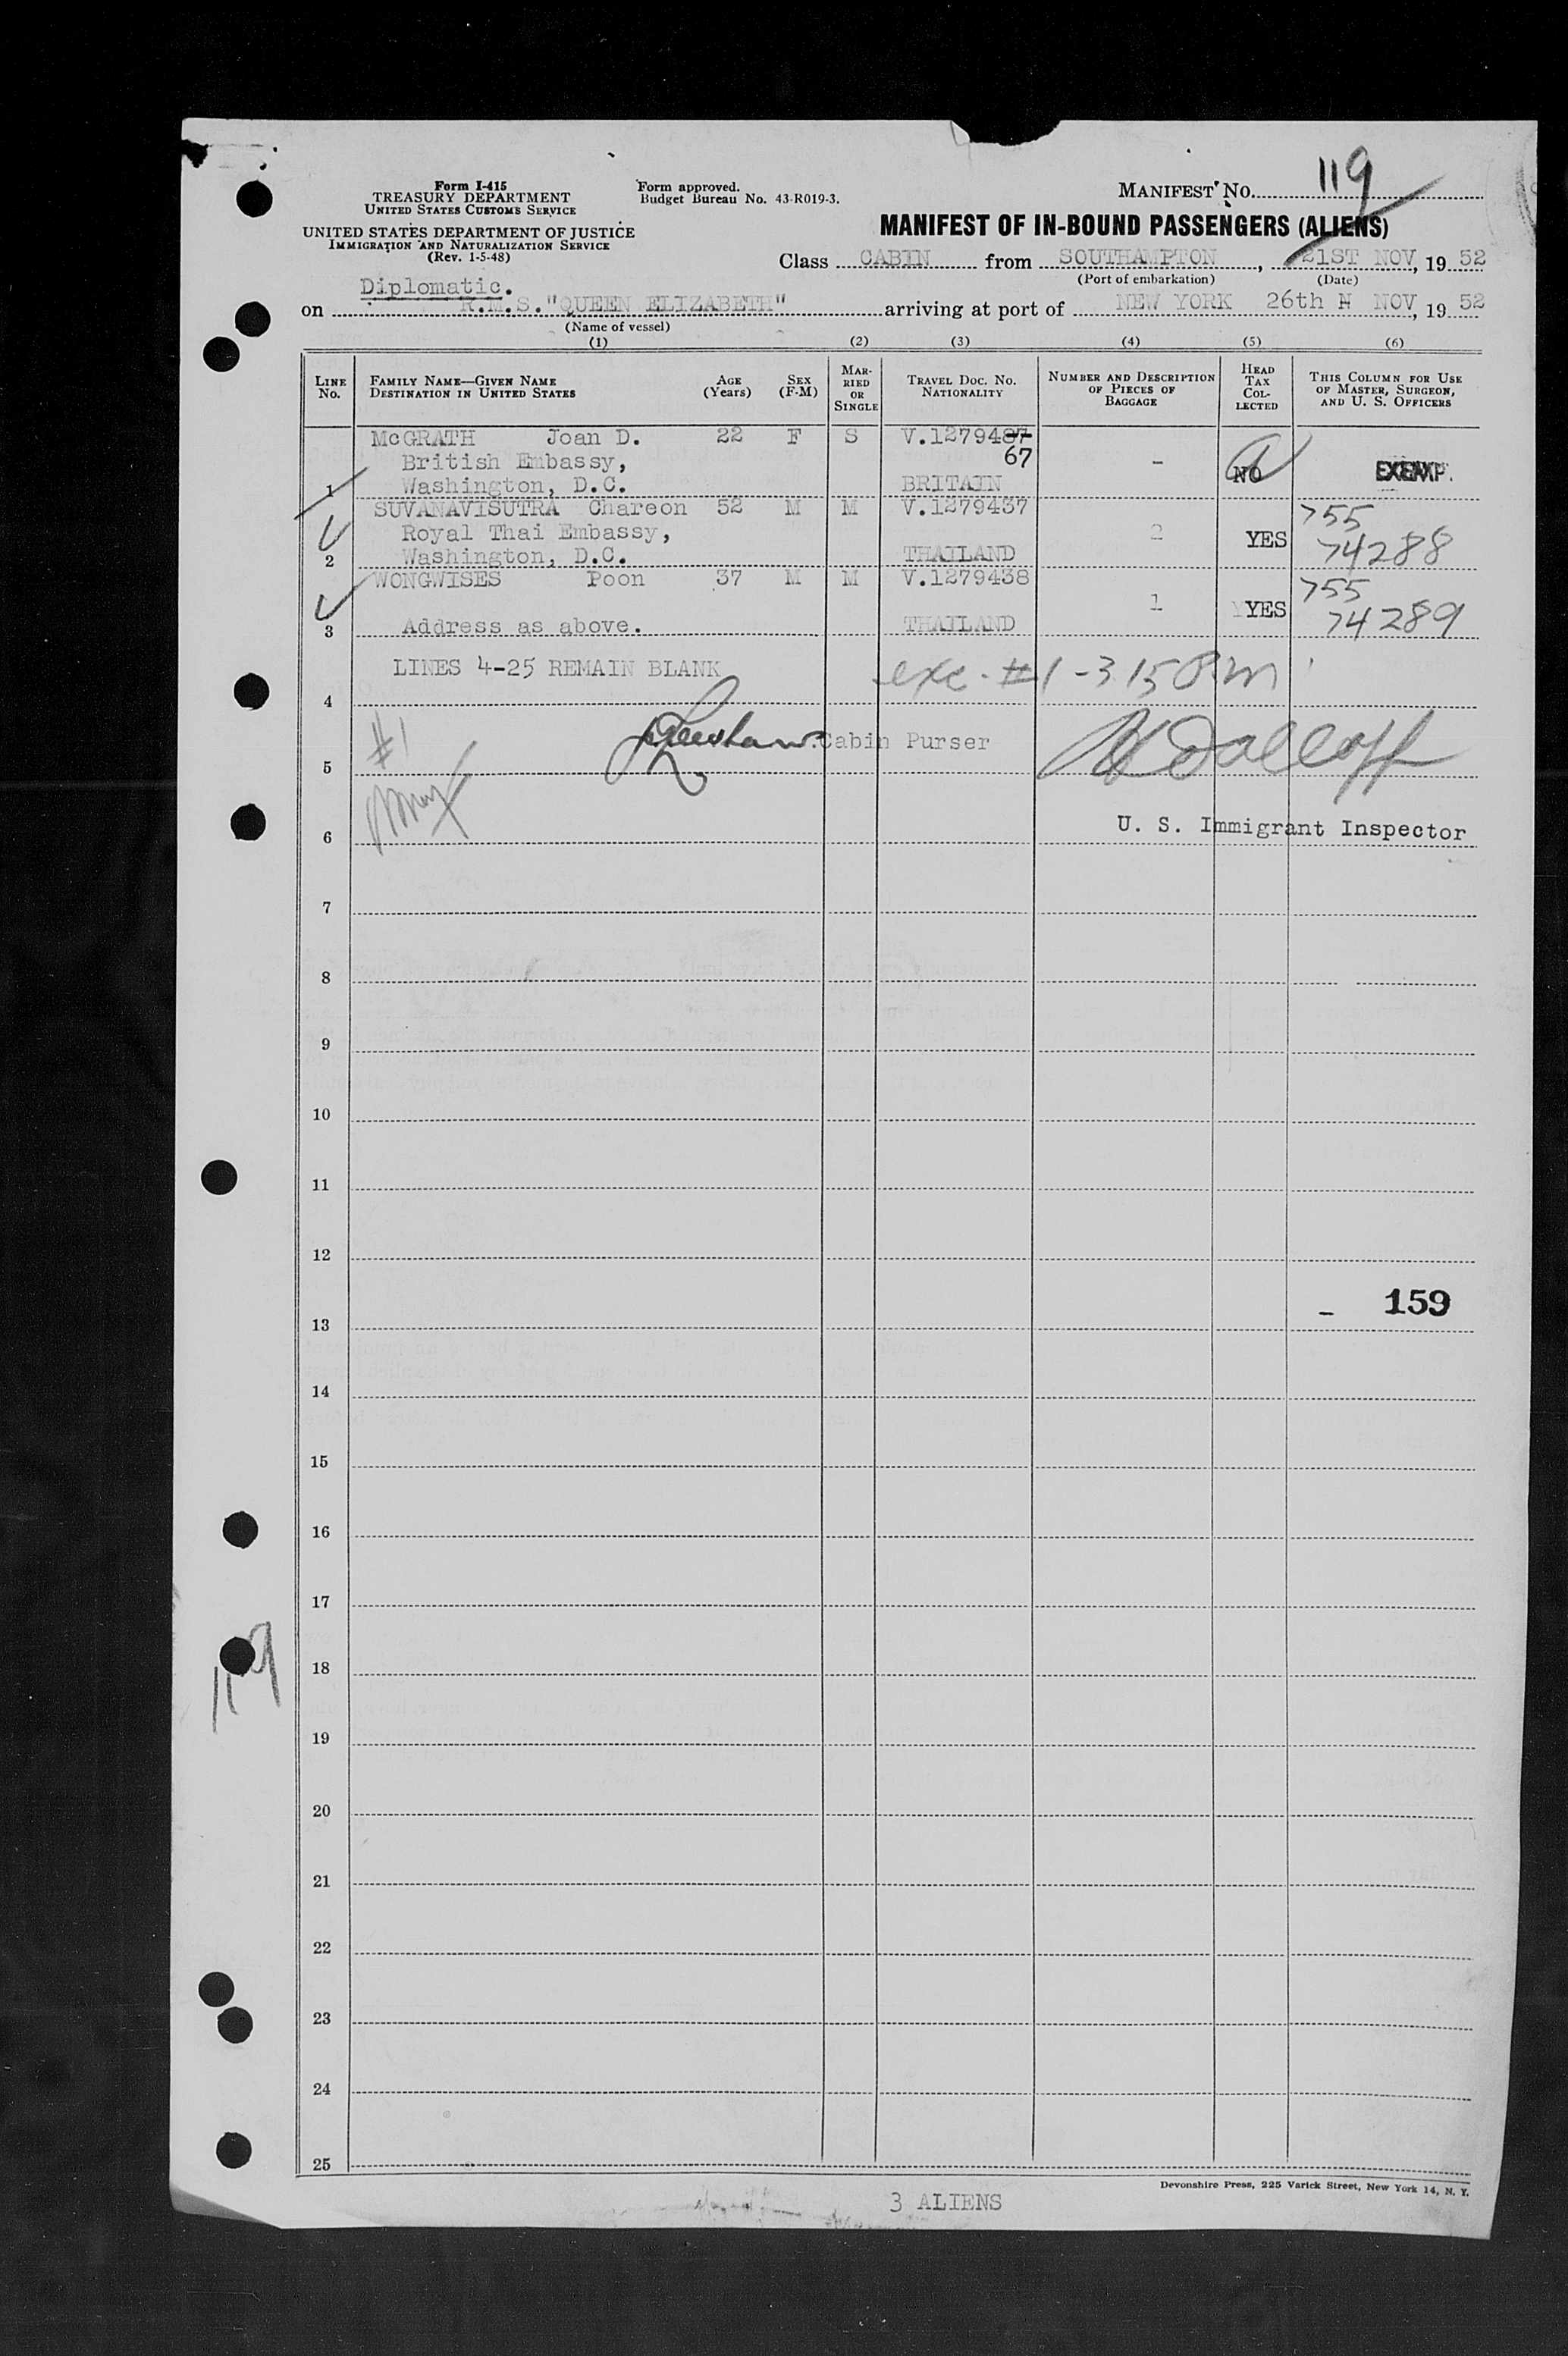 Form I-415
TREASURY DEPARTMENT
UNITED STATES CUSTOMS SERVICE
UNITED STATES DEPARTMENT OF JUSTICE
IMMIGRATION AND NATURALIZATION SERVICE
(Rev. 1-5-48)
Form approved.
Budget Bureau No. 43-R019-3.
MANIFEST NO. 119
MANIFEST OF IN-BOUND PASSENGERS (ALIENS)
Class CABIN from SOUTHAMPTON, 21ST NOV, 19 52
(Port of embarkation) (Date)
Diplomatic.
on R.M.S."QUEEN ELIZABETH" arriving at port of NEW YORK 26th N NOV, 19 52
(Name of vessel)
(1) (2) (3) (4) (5) (6)
LINE NO. FAMILY NAME—GIVEN NAME DESTINATION IN UNITED STATES AGE (Years) SEX (F-M) MARRIED OR SINGLE TRAVEL DOC. NO. NATIONALITY NUMBER AND DESCRIPTION OF PIECES OF BAGGAGE HEAD TAX COLLECTED THIS COLUMN FOR USE OF MASTER, SURGEON, AND U. S. OFFICERS
McGRATH Joan D. 22 F S V.1279487
British Embassy, 67 -
1 Washington, D.C. BRITAIN NO EXEMP.
SUVANAVISUTRA Chareon 52 M M V.1279437 755
Royal Thai Embassy, 2 YES
2 Washington, D.C. THAILAND 74288
WONGWISES Poon 37 M M V.1279438 755
1 YES
3 Address as above. THAILAND 74289
LINES 4-25 REMAIN BLANK exc. #1 - 315 PM
4
#1 Cabin Purser
5
6 U. S. Immigrant Inspector
7
8
9
10
11
12
- 159
13
14
15
16
17
119
18
19
20
21
22
23
24
25
Devonshire Press, 225 Varick Street, New York 14, N. Y.
3 ALIENS